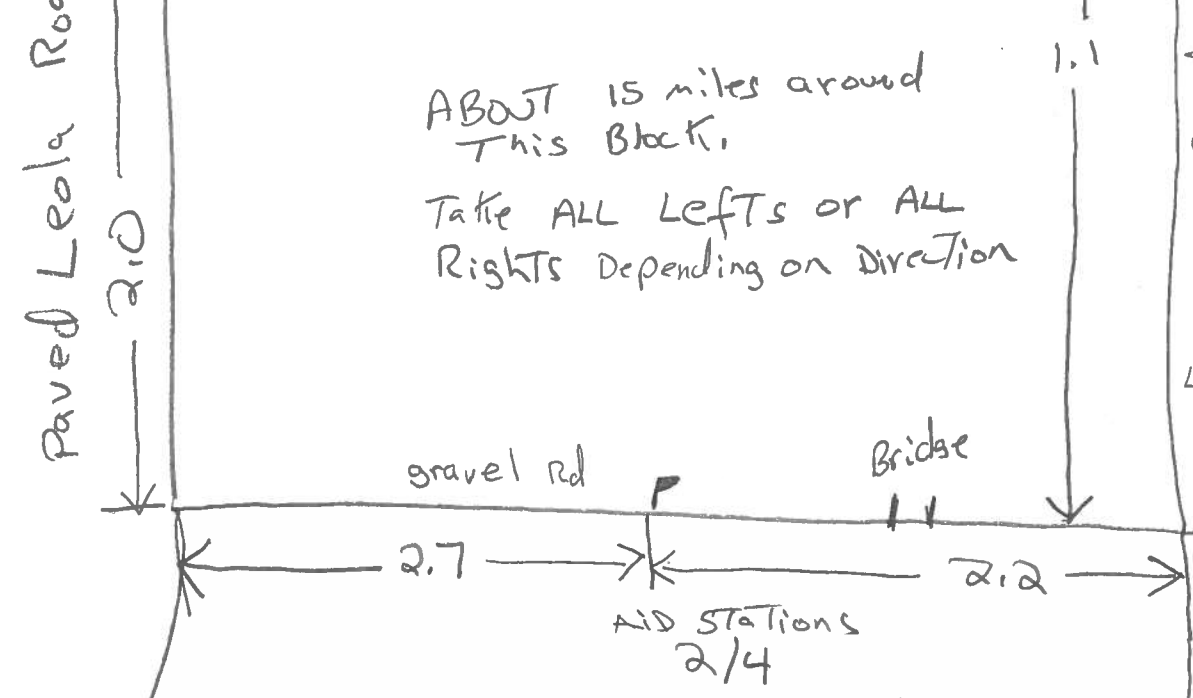 Paved Leola
2.0
1.1
ABOUT 15 miles around
This Block.
Take ALL Lefts or ALL
Rights Depending on Direction
gravel Rd
P
Bridge
2.7
2.2
AiD STaTions
2/4